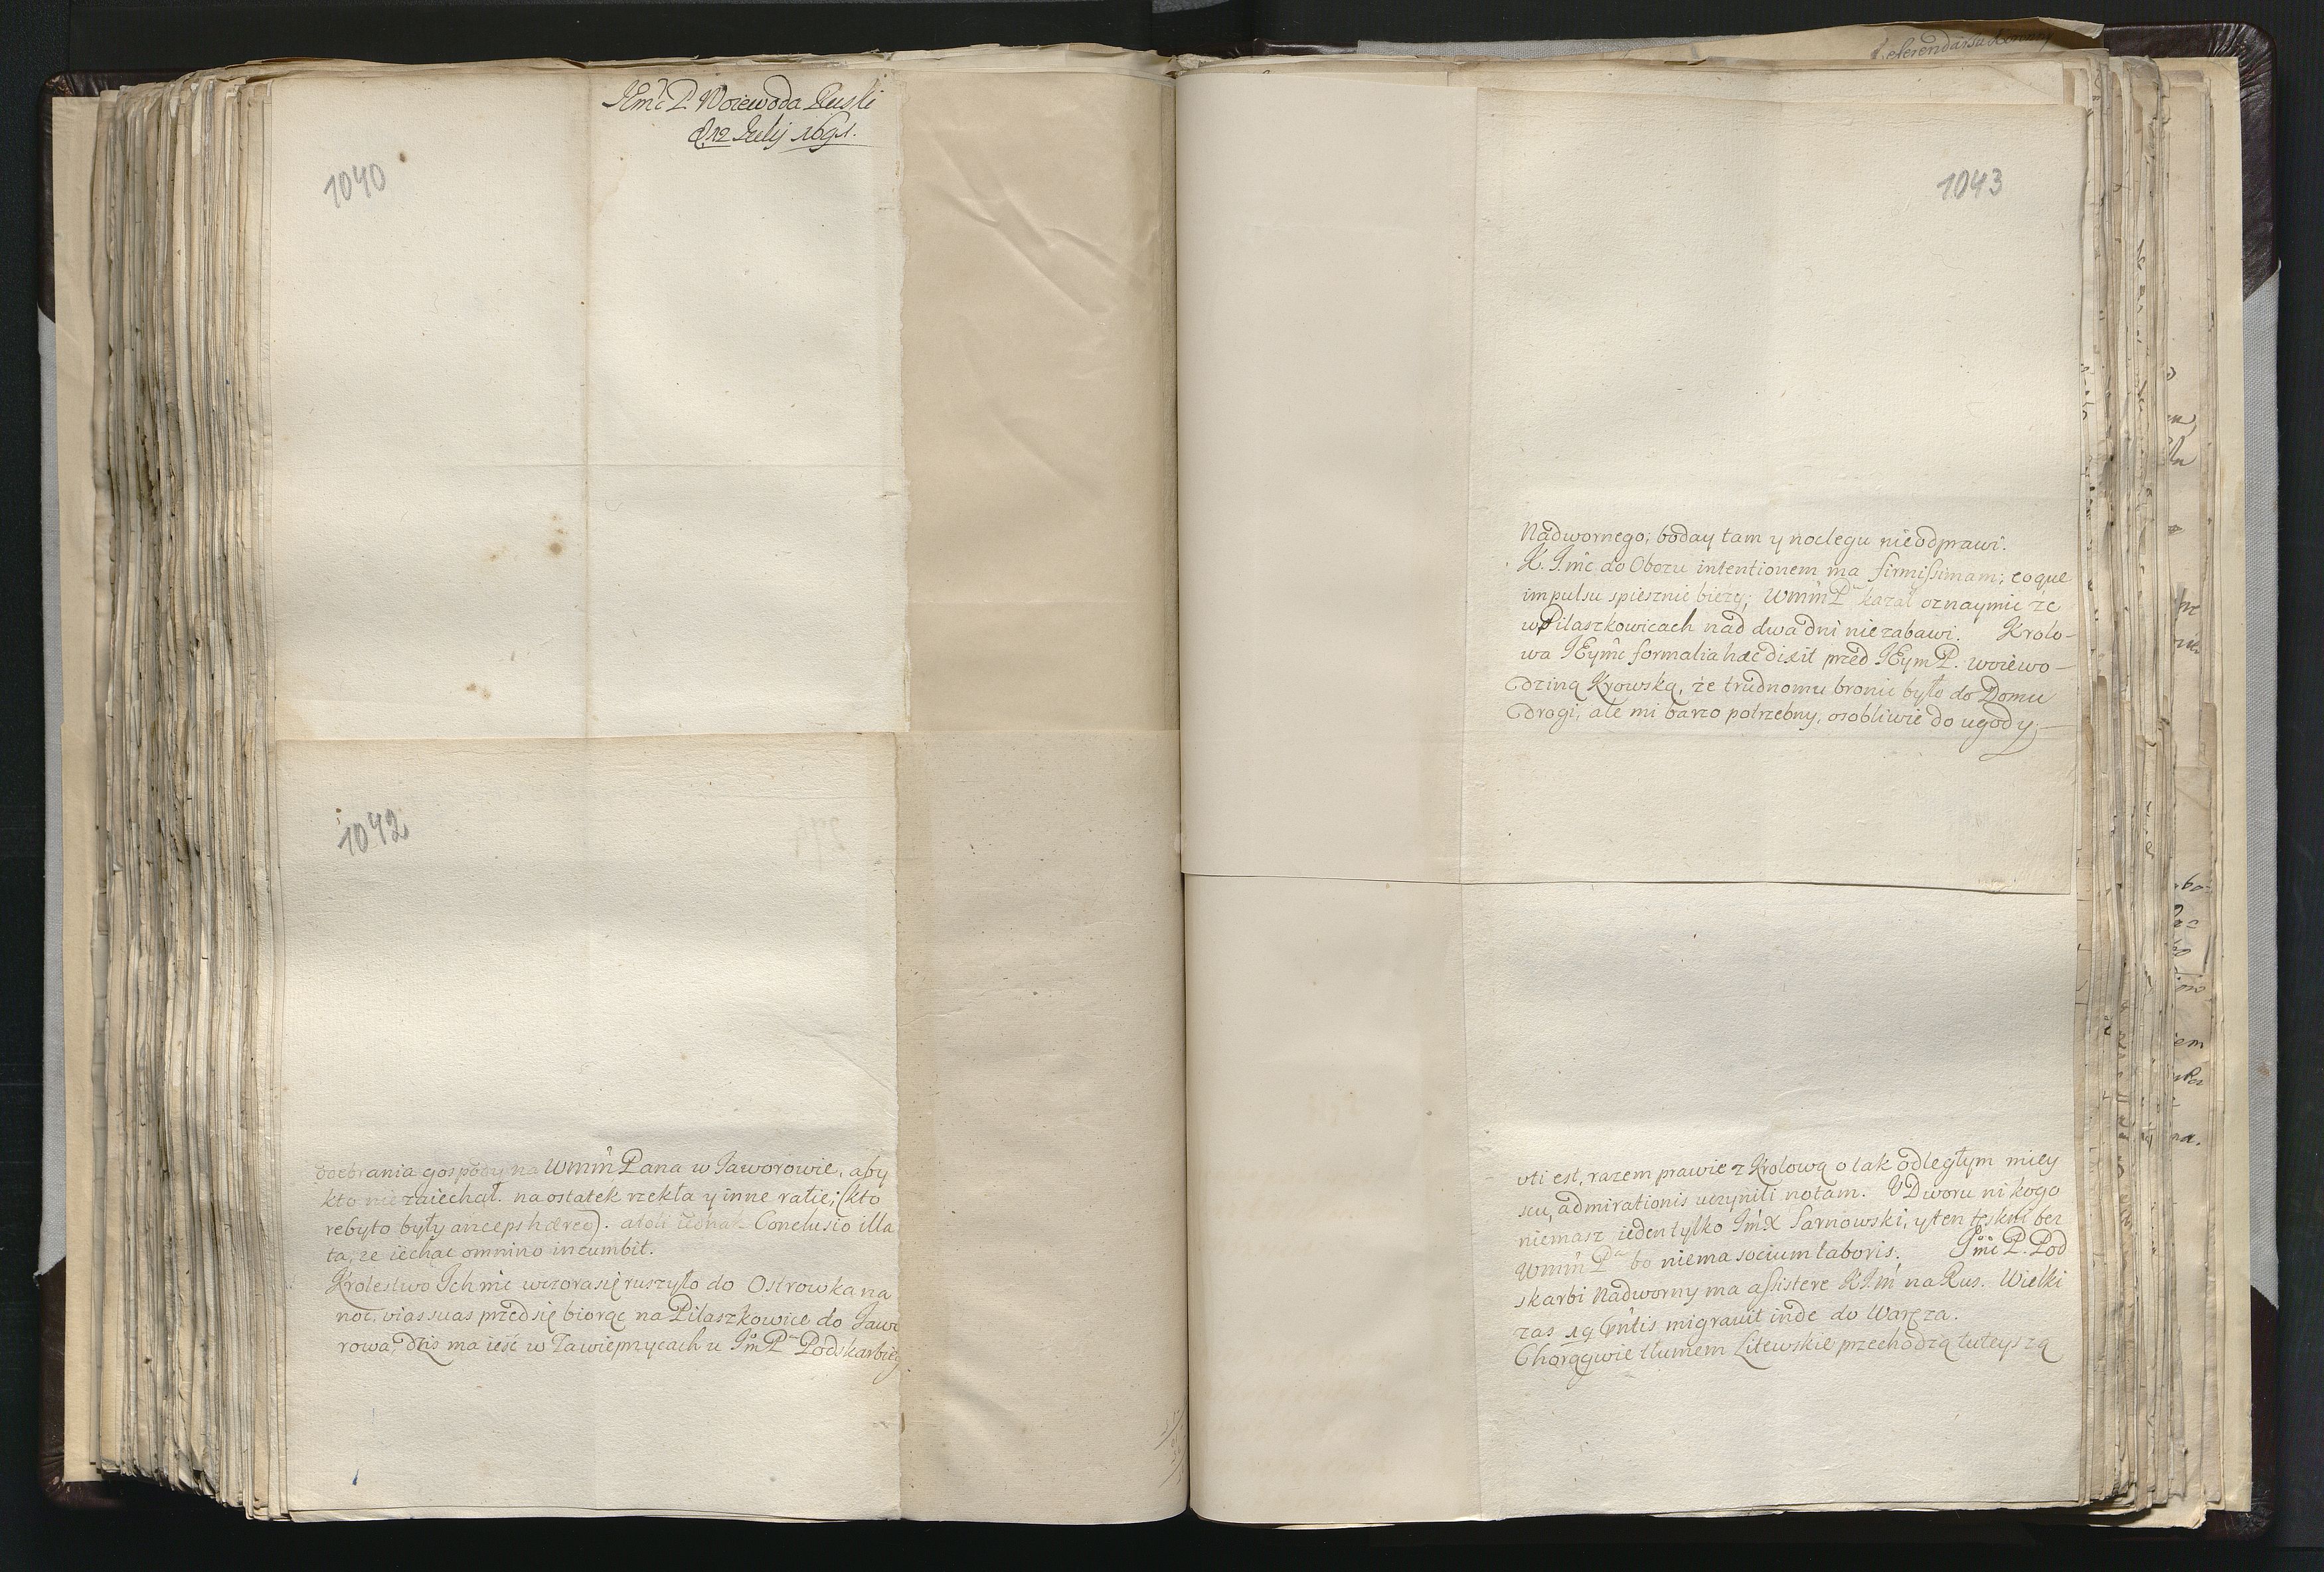 JEmć P. Woiewoda Ruski
d. 12 Julij 1691.
1040
1042
odebrania gospody na WmmPana w Jaworowie, aby
kto nie zaiechał. na ostatek rzekła y inne ratie; (kto
re by to były anceps hæreo). atoli iednak Conclusio illa
ta, że iechac omnino incumbit.
Krolestwo Ichmć wczora się ruszyło do Ostrowka na
noc, vias suas przed się biorąc na Pilaszkowice do Jawo
rowa, dzis ma ieść w Zawieprzycach u JmP Podskarbieg
1043
Nadwornego; boday tam y noclegu nieodprawi.
K. J.mć do Obozu intentionem ma firmissimam; eoque
impulsu spiesznie bieży; WmmP kazał oznaymic że
w Pilaszkowicach nad dwa dni nie zabawi. Krolo-
wa JEymć formalia hæc dixit przed JEymP. woiewo-
dziną Krowską, że trudno mu bronic było do Domu
drogi, ale mi barzo potrzebny, osobliwie do ugody,
uti est, razem prawie z Krolową o tak odległym miey
scu, admirationis uczynili notam. U Dworu nikogo
niemasz ieden tylko JmX Sarnowski, y ten teskni bez
WmmP bo niema socium laboris. Jmć P. Pod
skarbi Nadworny ma assistere KJm na Rus. Wielki
zas 19 pntis migravit inde do Waręza.
Chorągwie tłumem Litewskie przechodzą tuteyszą